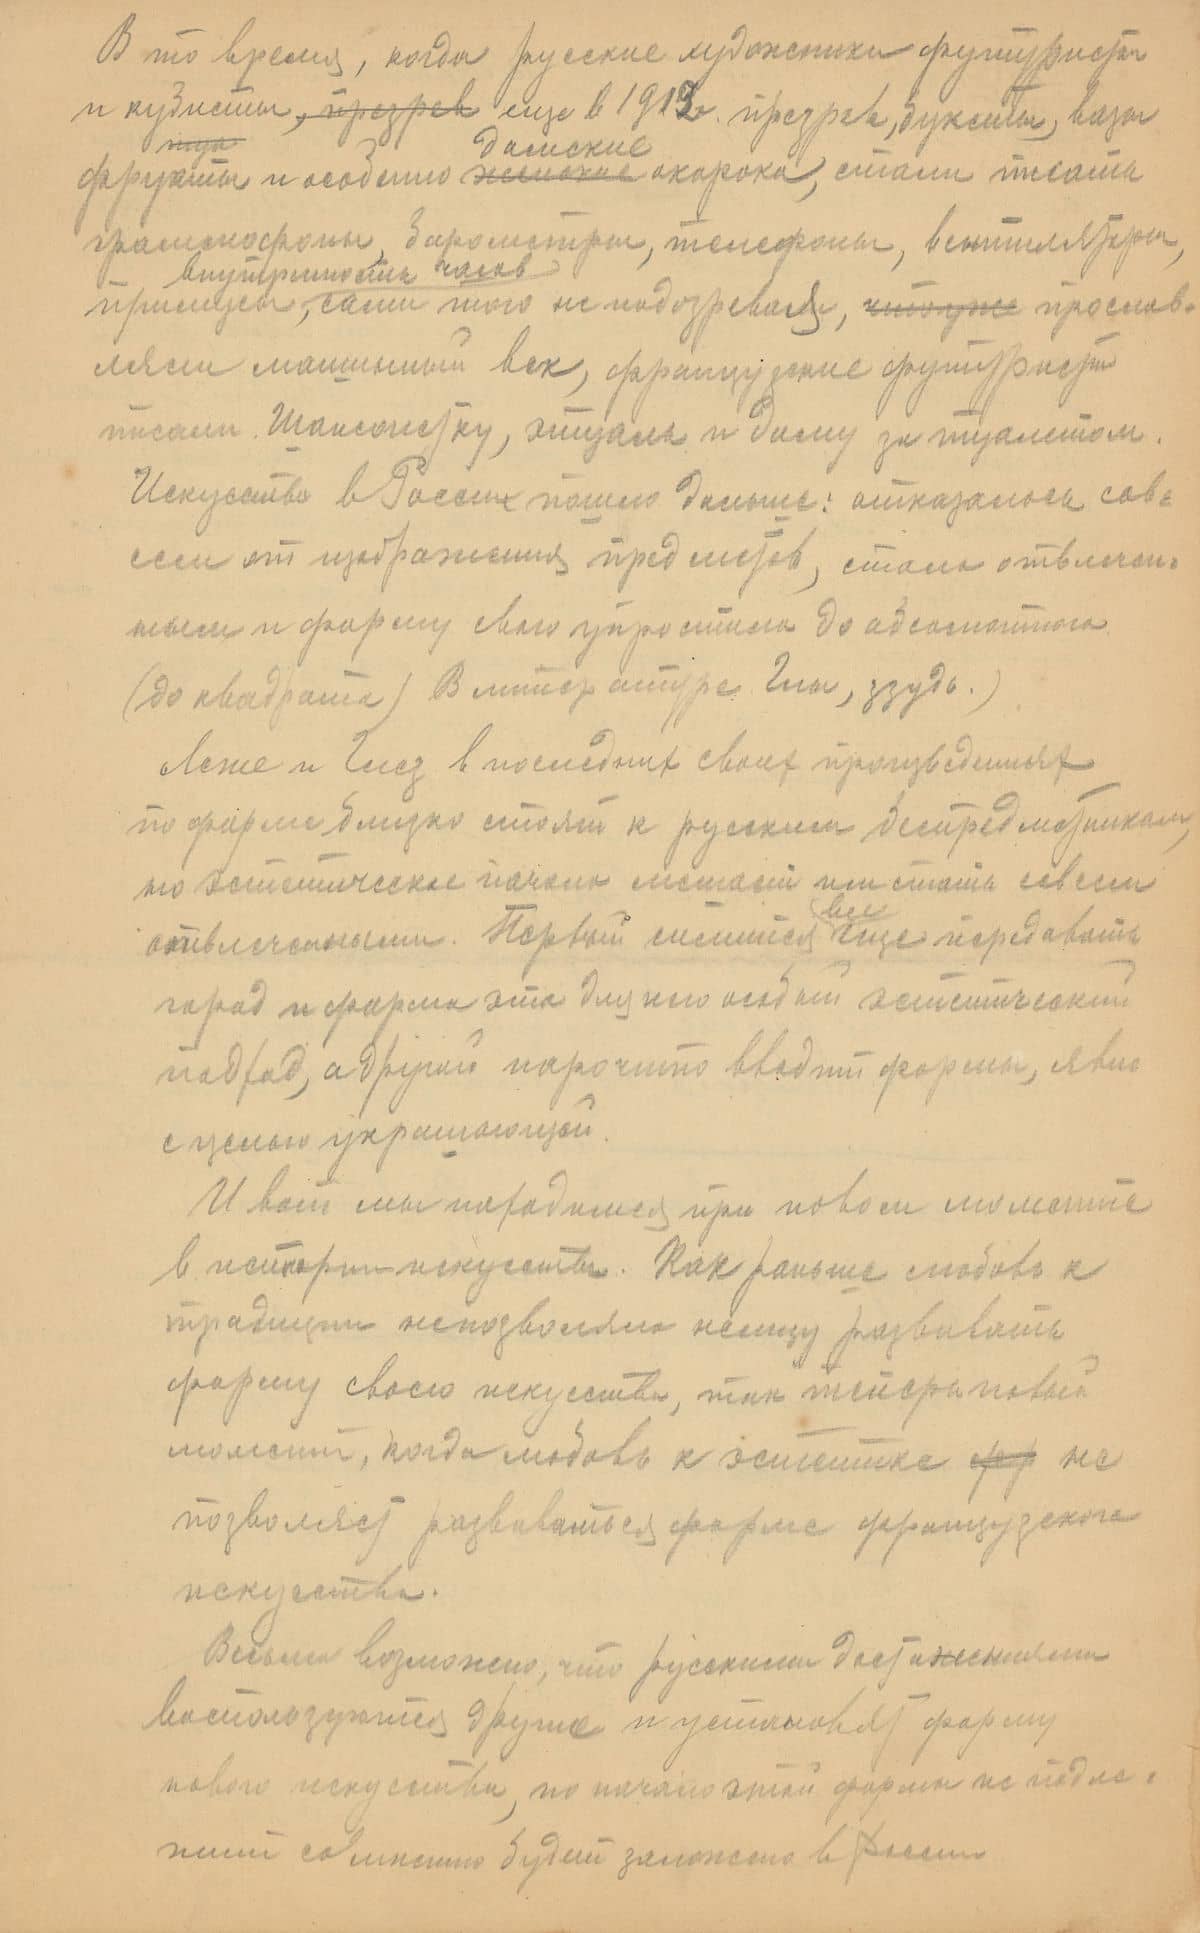 В то время, когда русские художники футуристы
и кубисты, презрев еще в 1913г. презрев, букеты, вазы
фрукты и особенно женские дамские окорока, стали писать
граммофоны, барометры, телефоны, вентиляторы,
внутренность часов
прицепы, сами того не подозревая, что уже прослав-
ляли машинный век, французские футуристы
писали шансонетку, этуаль и даму за туалетом.
Искусство в России пошло дальше: отказалось сов-
сем от изображения предметов, стало отвлечен-
ным и форму свою упростило до абсолютного
(до квадрата) В литературе Глы, ззудь.)
Леже и Глез в последних своих произведеньях
по форме близко стоят к русским беспредметникам,
но эстетическое начало мешает им стать совсем
отвлеченными. Первый силится все еще передавать
город и форма это для него особый эстетический
подход, а другой нарочито вводит формы, явно
с целью украшающей.
И вот мы находимся при новом моменте
в истории искусства. Как раньше любовь к
традиции не позволяла немцу развивать
форму своего искусства, так теперь новый
момент, когда любовь к эстетике фр не
позволяет развиваться форме французского
искусства.
Весьма возможно, что русскими достижениями
воспользуются другие и установят форму
нового искусства, но начало этой формы не подле-
жит сомнению будет заложено в России